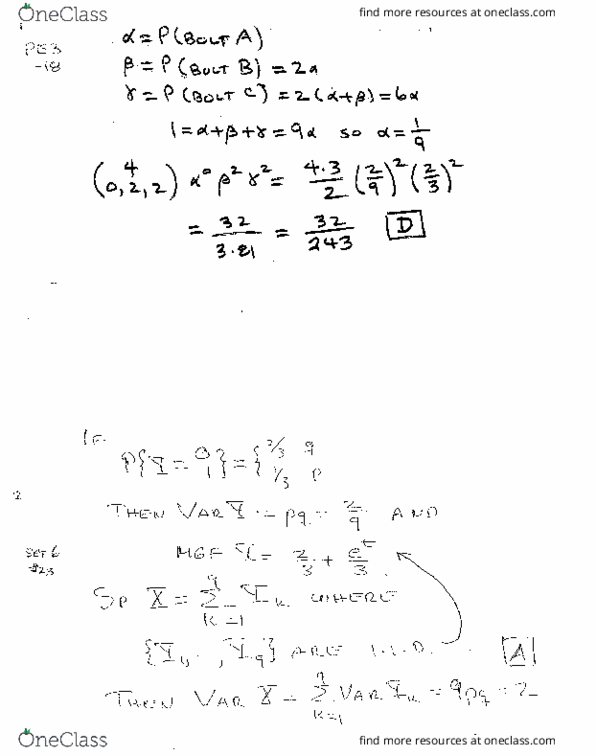 OneClass find more resources at oneclass.com
PG 3
-18
α = P(BOLT A)
β = P(BOLT B) = 2α
γ = P(BOLT C) = 2(α+β) = 6α
1 = α+β+γ = 9α so α = 1/9
(4 / 0,2,2) α⁰ β² γ² = 4·3/2 (2/9)² (2/3)²
= 32/3·81 = 32/243 [D]
IF
P{Y = 0 1} = {2/3 q 1/3 p
THEN VAR Y = pq = 2/9 AND
SET 6
#23
MGF Y = 2/3 + e^t/3
SO X = Σ_{k=1}^{9} Y_k WHERE
{Y_1, ·, Y_9} ARE I.I.D. [A]
THEN VAR X = Σ_{k=1}^{9} VAR Y_k = 9pq = 2
OneClass find more resources at oneclass.com